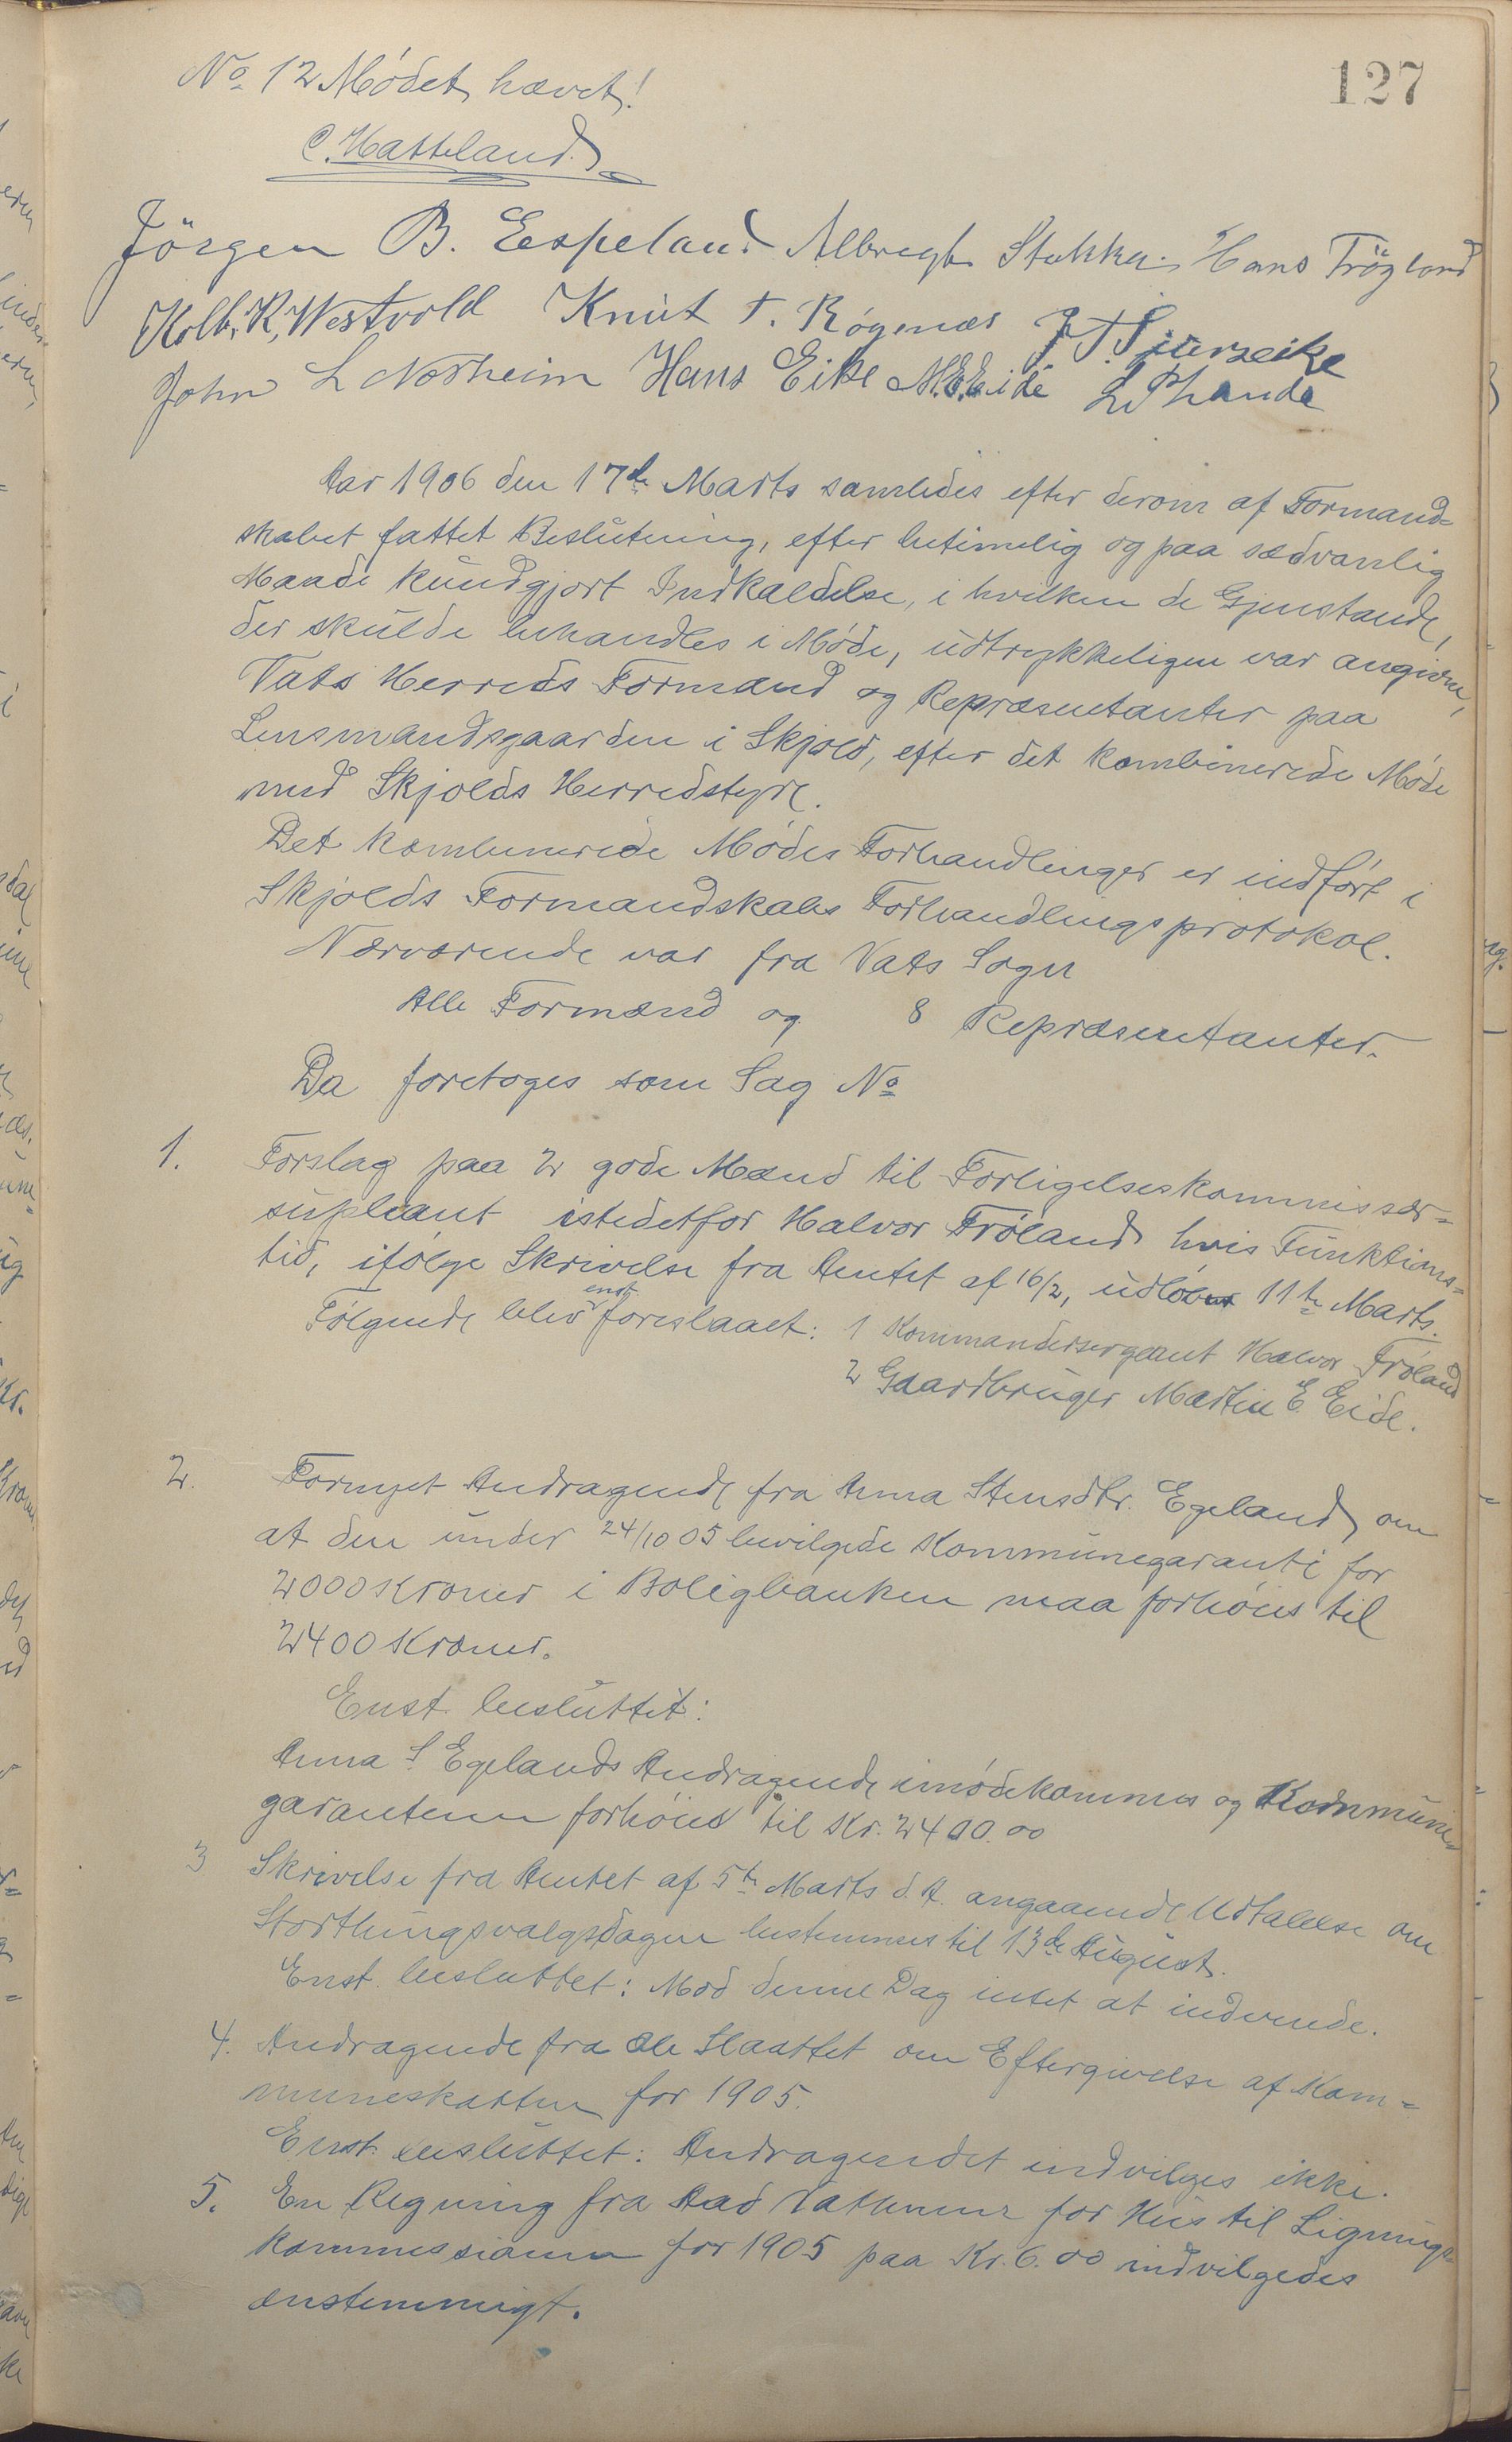 127
No 12 Mødet hævet!
C. Hatteland
Jörgen B. Espeland Albregt Stakke Hans Fröyland
Kolb. R. Westvold Knut T. Røgenes
John L Norheim Hans Eike M. E. Eide
Aar 1906 den 17de Marts samledes efter derom af Formand-
skabet fattet Beslutning, efter betimelig og paa sædvanlig
Maade kundgjort Indkaldelse, i hvilken de Gjenstande,
der skulde behandles i Møde, udtrykkeligen var angivne,
Vats Herreds Formænd og Repræsentanter paa
Lensmandsgaarden i Skjold, efter det kombinerede Møde
med Skjolds Herredstyre.
Det kombinerede Mødes Forhandlinger er indført i
Skjolds Formandskabs Forhandlingsprotokol.
Nærværende var fra Vats Sogn
Alle Formænd og 8 Repræsentanter.
Da foretoges som Sag No
1. Forslag paa 2 gode Mænd til Forligelseskommissær-
supleant istedetfor Halvor Frøland hvis Funktions-
tid, ifølge Skrivelse fra Amtet af 16/2, udløber 11te Marts.
Følgende blev enst foreslaaet: 1 Kommandersergeant Halvor Frøland
2 Gaardbruger Martin E. Eide.
2. Fornyet Andragende fra Anna Stensdtr. Egeland om
at den under 24/10 05 bevilgede Kommunegaranti for
2000 Kroner i Boligbanken maa forhøies til
2400 Kroner.
Enst. besluttet:
Anna S Egelands Andragende imødekommes og Kommune-
garantien forhøies til Kr. 2400.00
3 Skrivelse fra Amtet af 5te Marts d. A. angaaende Udtalelse om
Storthingsvalgsdagen bestemmes til 13de August.
Enst. besluttet: Mod denne Dag intet at indvende.
4. Andragende fra Ole Slaattet om Eftergivelse af Kom-
muneskatten for 1905.
Enst. besluttet: Andragendet indvilges ikke.
5. En Regning fra Aad Vatnemr for Hus til Lignings-
kommissionen for 1905 paa Kr. 6.00 indvilgedes
enstemmigt.